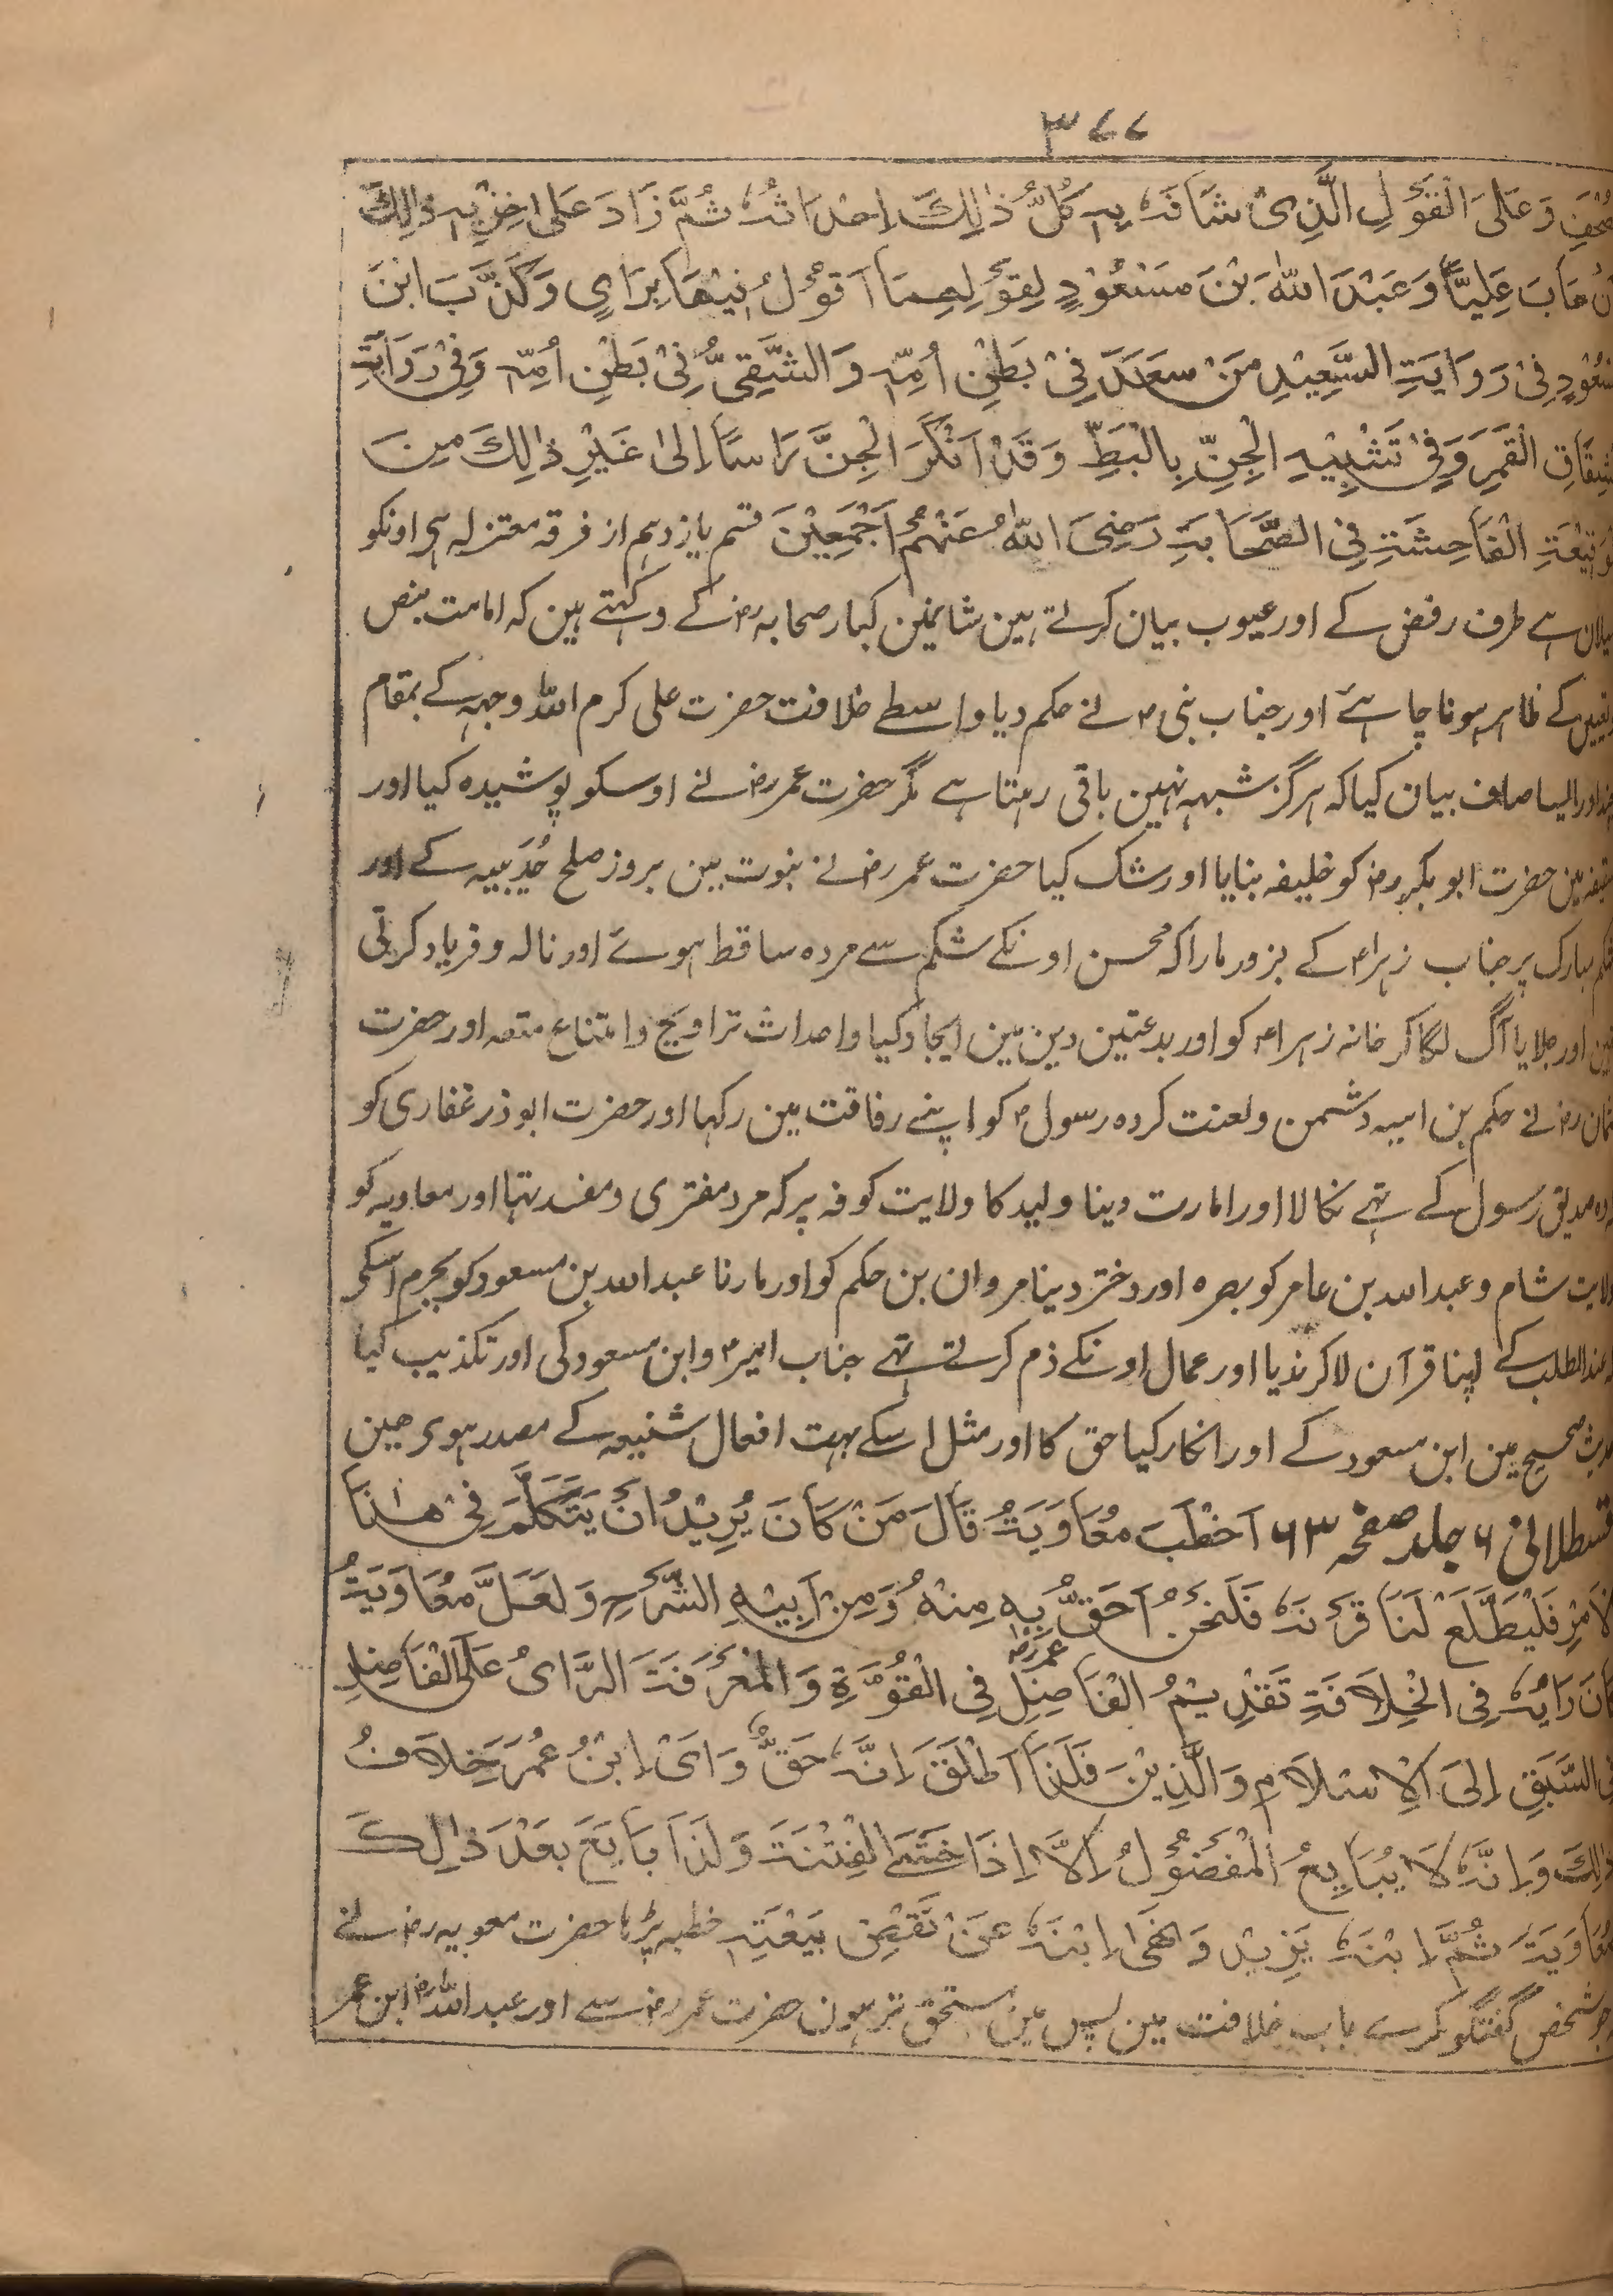 ٣٧٧
وَعَلَى الْقَوْلِ الَّذِیْ شَافَهٗ بِهٖ كُلُّ ذٰلِكَ اِحْدَاثُهٗ ثُمَّ زَادَ عَلٰی خِزْیِهٖ ذٰلِكَ
عَابَ عَلِیًّا وَعَبْدَ اللّٰهِ بْنَ مَسْعُوْدٍ لِقَوْلِهِمَا اَقُوْلُ فِیْهَا بِرَایٍ وَكَذَّبَ ابْنَ
فِیْ رَوَایَتِ السَّعِیْدِ مَنْ سَعِدَ فِیْ بَطْنِ اُمِّهٖ وَالشَّقِیُّ فِیْ بَطْنِ اُمِّهٖ وَفِیْ رَوَایَتِ
الْقَمَرِ وَفِیْ تَشْبِیْهِ الْجِنِّ بِالْبَطِّ وَقَدْ اَنْكَرَ الْجِنَّ رَاسًا اِلٰی غَیْرِ ذٰلِكَ مِنَ
الْفَاحِشَتِ فِی الصَّحَابَتِ رَضِیَ اللّٰهُ عَنْهُمْ اَجْمَعِیْنَ قسم یازدہم از فرقہ معتزلہ ہی اونکو
میلان ہے طرف رفض کے اور عیوب بیان کرتے ہین شانمین کبار صحابہ رض کے و کہتے ہین کہ امامت بنص
کے ظاہر ہونا چاہئے اور جناب نبی ص نے حکم دیا واسطے خلافت حضرت علی کرم اللہ وجہہ کے بمقام
اور ایسا صاف بیان کیا کہ ہرگز شبہہ نہین باقی رہتا ہے مگر حضرت عمر رض نے اوسکو پوشیدہ کیا اور
مین حضرت ابوبکر رض کو خلیفہ بنایا اور شک کیا حضرت عمر رض نے نبوت مین بروز صلح حُدَیبیہ کے اور
مبارک پر جناب زہرا ع کے بزور مارا کہ محسن اونکے شکم سے مردہ ساقط ہوئے اور نالہ و فریاد کرتی
اور جلایا آگ لگا کر خانہ زہرا ع کو اور بدعتین دین مین ایجاد کیا و احداث تراویح و امتناع متعہ اور حضرت
رض نے حکم بن امیہ دشمن و لعنت کردہ رسول ص کو اپنے رفاقت مین رکہا اور حضرت ابوذر غفاری کو
صدیق رسول کے تہے نکالا اور امارت دینا ولید کا ولایت کوفہ پر کہ مرد مفتری و مفسد تہا اور معاویہ کو
ولایت شام و عبد اللہ بن عامر کو بصرہ اور دختر دینا مروان بن حکم کو اور مارنا عبد اللہ بن مسعود کو بجرم اسکی
عند الطلب کے اپنا قرآن لاکر ندیا اور عمال اونکے ذم کرتے تہے جناب امیر ع و ابن مسعود کی اور تکذیب کیا
صحیح مین ابن مسعود کے اور انکار کیا حق کا اور مثل اسکے بہت افعال شنیعہ کے مصدر ہوی ہین
قسطلانی ٦ جلد صفحہ ٦٣ اَخْطَبَ مُعَاوَیَتُ قَالَ مَنْ كَانَ یُرِیْدُ اَنْ یَتَكَلَّمَ فِیْ هٰذَا
الْاَمْرِ فَلْیَطْلَعْ لَنَا قَرْنَهٗ فَلَنَحْنُ اَحَقُّ بِهٖ مِنْهُ وَمِنْ اَبِیْهِ الشَّرْحِ وَلَعَلَّ مُعَاوَیَتُ
عمر رض
كَانَ رَایُهٗ فِی الْخِلَافَتِ تَقْدِیْمُ الْفَاضِلِ فِی الْقُوَّةِ وَالْمَعْرَفَتَ الرَّایُ عَلَی الْفَاضِلِ
السَّبَقِ اِلَی الْاِسْلَامِ وَالَّدِیْنَ فَلَذَا اَطْلَقَ اِنَّهٗ حَقٌّ وَرَایْ اِبْنُ عُمَرَ خِلَافُ
ذٰلِكَ وَاِنَّهٗ لَا یُبَایِعُ الْمَفْضُوْلُ اِلَّا اِذَا خَشَی الْفِتْنَتَ وَلَذَا بَایَعَ بَعْدَ ذٰلِكَ
مُعَاوَیَتَ ثُمَّ اِبْنَهٗ یَزِیْدِ وَنَهٰی اِبْنَهٗ عَنْ نَقْضِ بَیْعَتِهٖ خطبہ پڑہا حضرت معویہ رض نے
جو شخص گفتگو کرے باب خلافت مین پس مین مستحق تر ہون حضرت عمر رض سے اور عبد اللہ ابن عمر